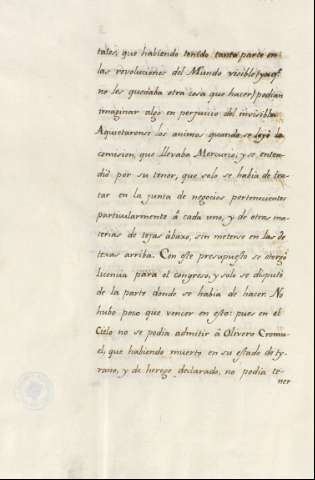 tales, que habiendo tenido tanta parte en
las revoluciones del Mundo visible (ya q.
no les quedaba otra cosa que hacer) podian
imaginar algo en perjuicio del invisible.
Aquietaronse los animos quando se leyó la
comision, que llevaba Mercurio; y se enten
dió por su tenor, que solo se habia de tra
tar en la junta de negocios pertenecientes
particularmente á cada uno, y de otras ma
terias de texas abaxo, sin meterse en las de
texas arriba. Con este presupuesto se otorgó
licencia para el congreso, y solo se disputó
de la parte donde se habia de hacer. No
hubo poco que vencer en esto: pues en el
Cielo no se podia admitir á Olivero Cromu
el; que habiendo muerto en su estado de ty
rano, y de herege declarado, no podia te
ner